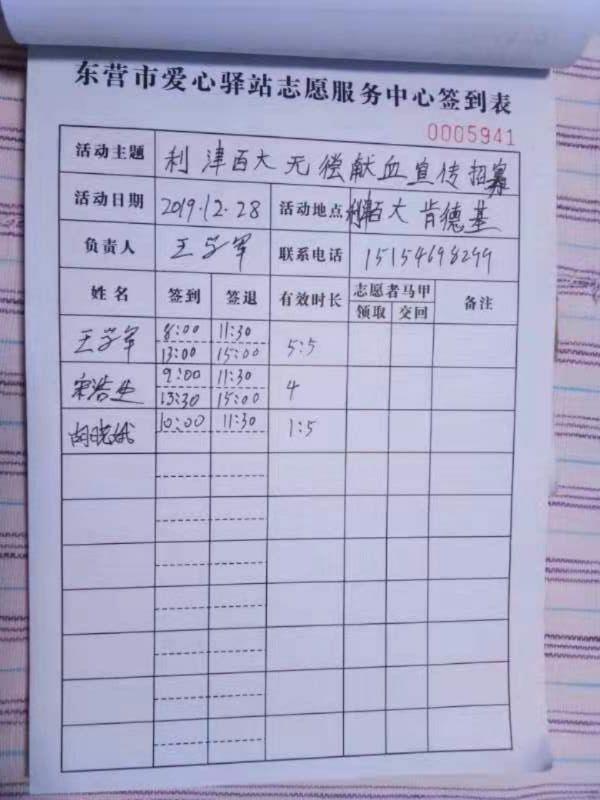 东营市爱心驿站志愿服务中心签到表
0005941
活动主题 利津百大无偿献血宣传招募
活动日期 2019.12.28 活动地点 利津百大肯德基
负责人 王学军 联系电话 15154698299
姓名 签到 签退 有效时长 志愿者马甲 备注
领取 交回
王学军 8:00 11:30 5:5
13:00 15:00
宋浩 9:00 11:30 4
13:30 15:00
晓娥 10:00 11:30 1:5